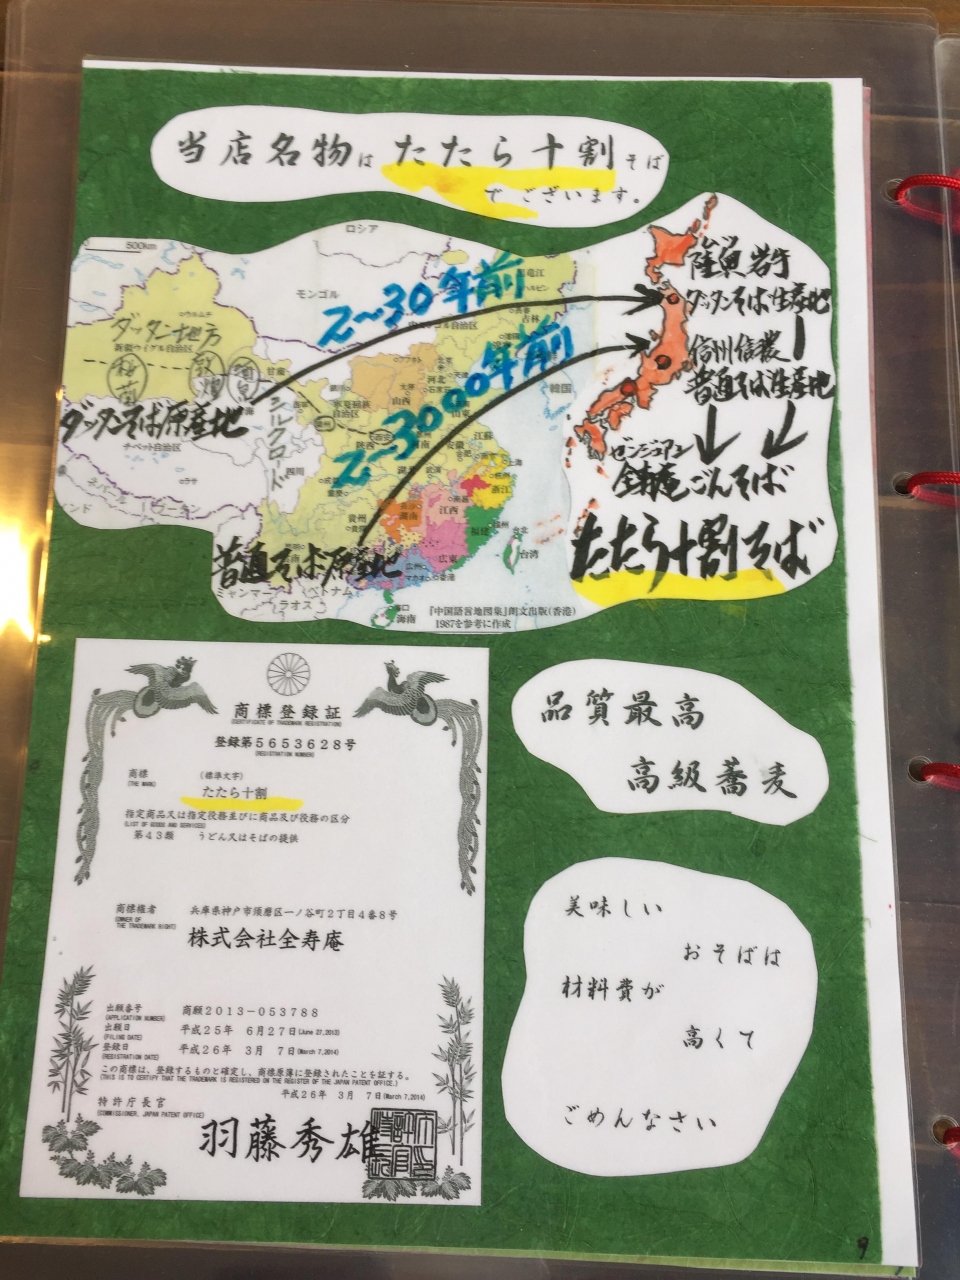 当店名物は たたら十割そば
でございます。
500km
ロシア
モンゴル
ウルムチ
ダッタン地方
新疆ウイグル自治区
甘粛
敦煌
ダッタンそば原産地
チベット自治区
ラサ
シルクロード
2〜30年前
2〜3000年前
黒竜江
ハルビン
長春
吉林
自治区
韓国
河北
山西
山東
江蘇
上海
浙江
四川
重慶
貴州
湖南
江西
福建
広東
広州
マカオ
香港
台北
台湾
海口
海南
普通そば原産地
ミャンマー
ベトナム
ラオス
ブータン
『中国語言地図集』朗文出版(香港)
1987を参考に作成
ダッタンそば生産地
信州信濃
普通そば生産地
ゼンジュアン
ごんそば
たたら十割そば
商標登録証
(CERTIFICATE OF TRADEMARK REGISTRATION)
登録第5653628号
(REGISTRATION NUMBER)
商標
(THE MARK)
(標準文字)
たたら十割
指定商品又は指定役務並びに商品及び役務の区分
(LIST OF GOODS AND SERVICES)
第43類 うどん又はそばの提供
商標権者
(OWNER OF THE TRADEMARK RIGHT)
兵庫県神戸市須磨区一ノ谷町2丁目4番8号
株式会社全寿庵
出願番号
(APPLICATION NUMBER)
商願2013-053788
出願日
(FILING DATE)
平成25年 6月27日(June 27,2013)
登録日
(REGISTRATION DATE)
平成26年 3月 7日(March 7,2014)
この商標は、登録するものと確定し、商標原簿に登録されたことを証する。
(THIS IS TO CERTIFY THAT THE TRADEMARK IS REGISTERED ON THE REGISTER OF THE JAPAN PATENT OFFICE.)
平成26年 3月 7日(March 7,2014)
特許庁長官
(COMMISSIONER, JAPAN PATENT OFFICE)
羽藤秀雄
品質最高
高級蕎麦
美味しい
おそばは
材料費が
高くて
ごめんなさい
9